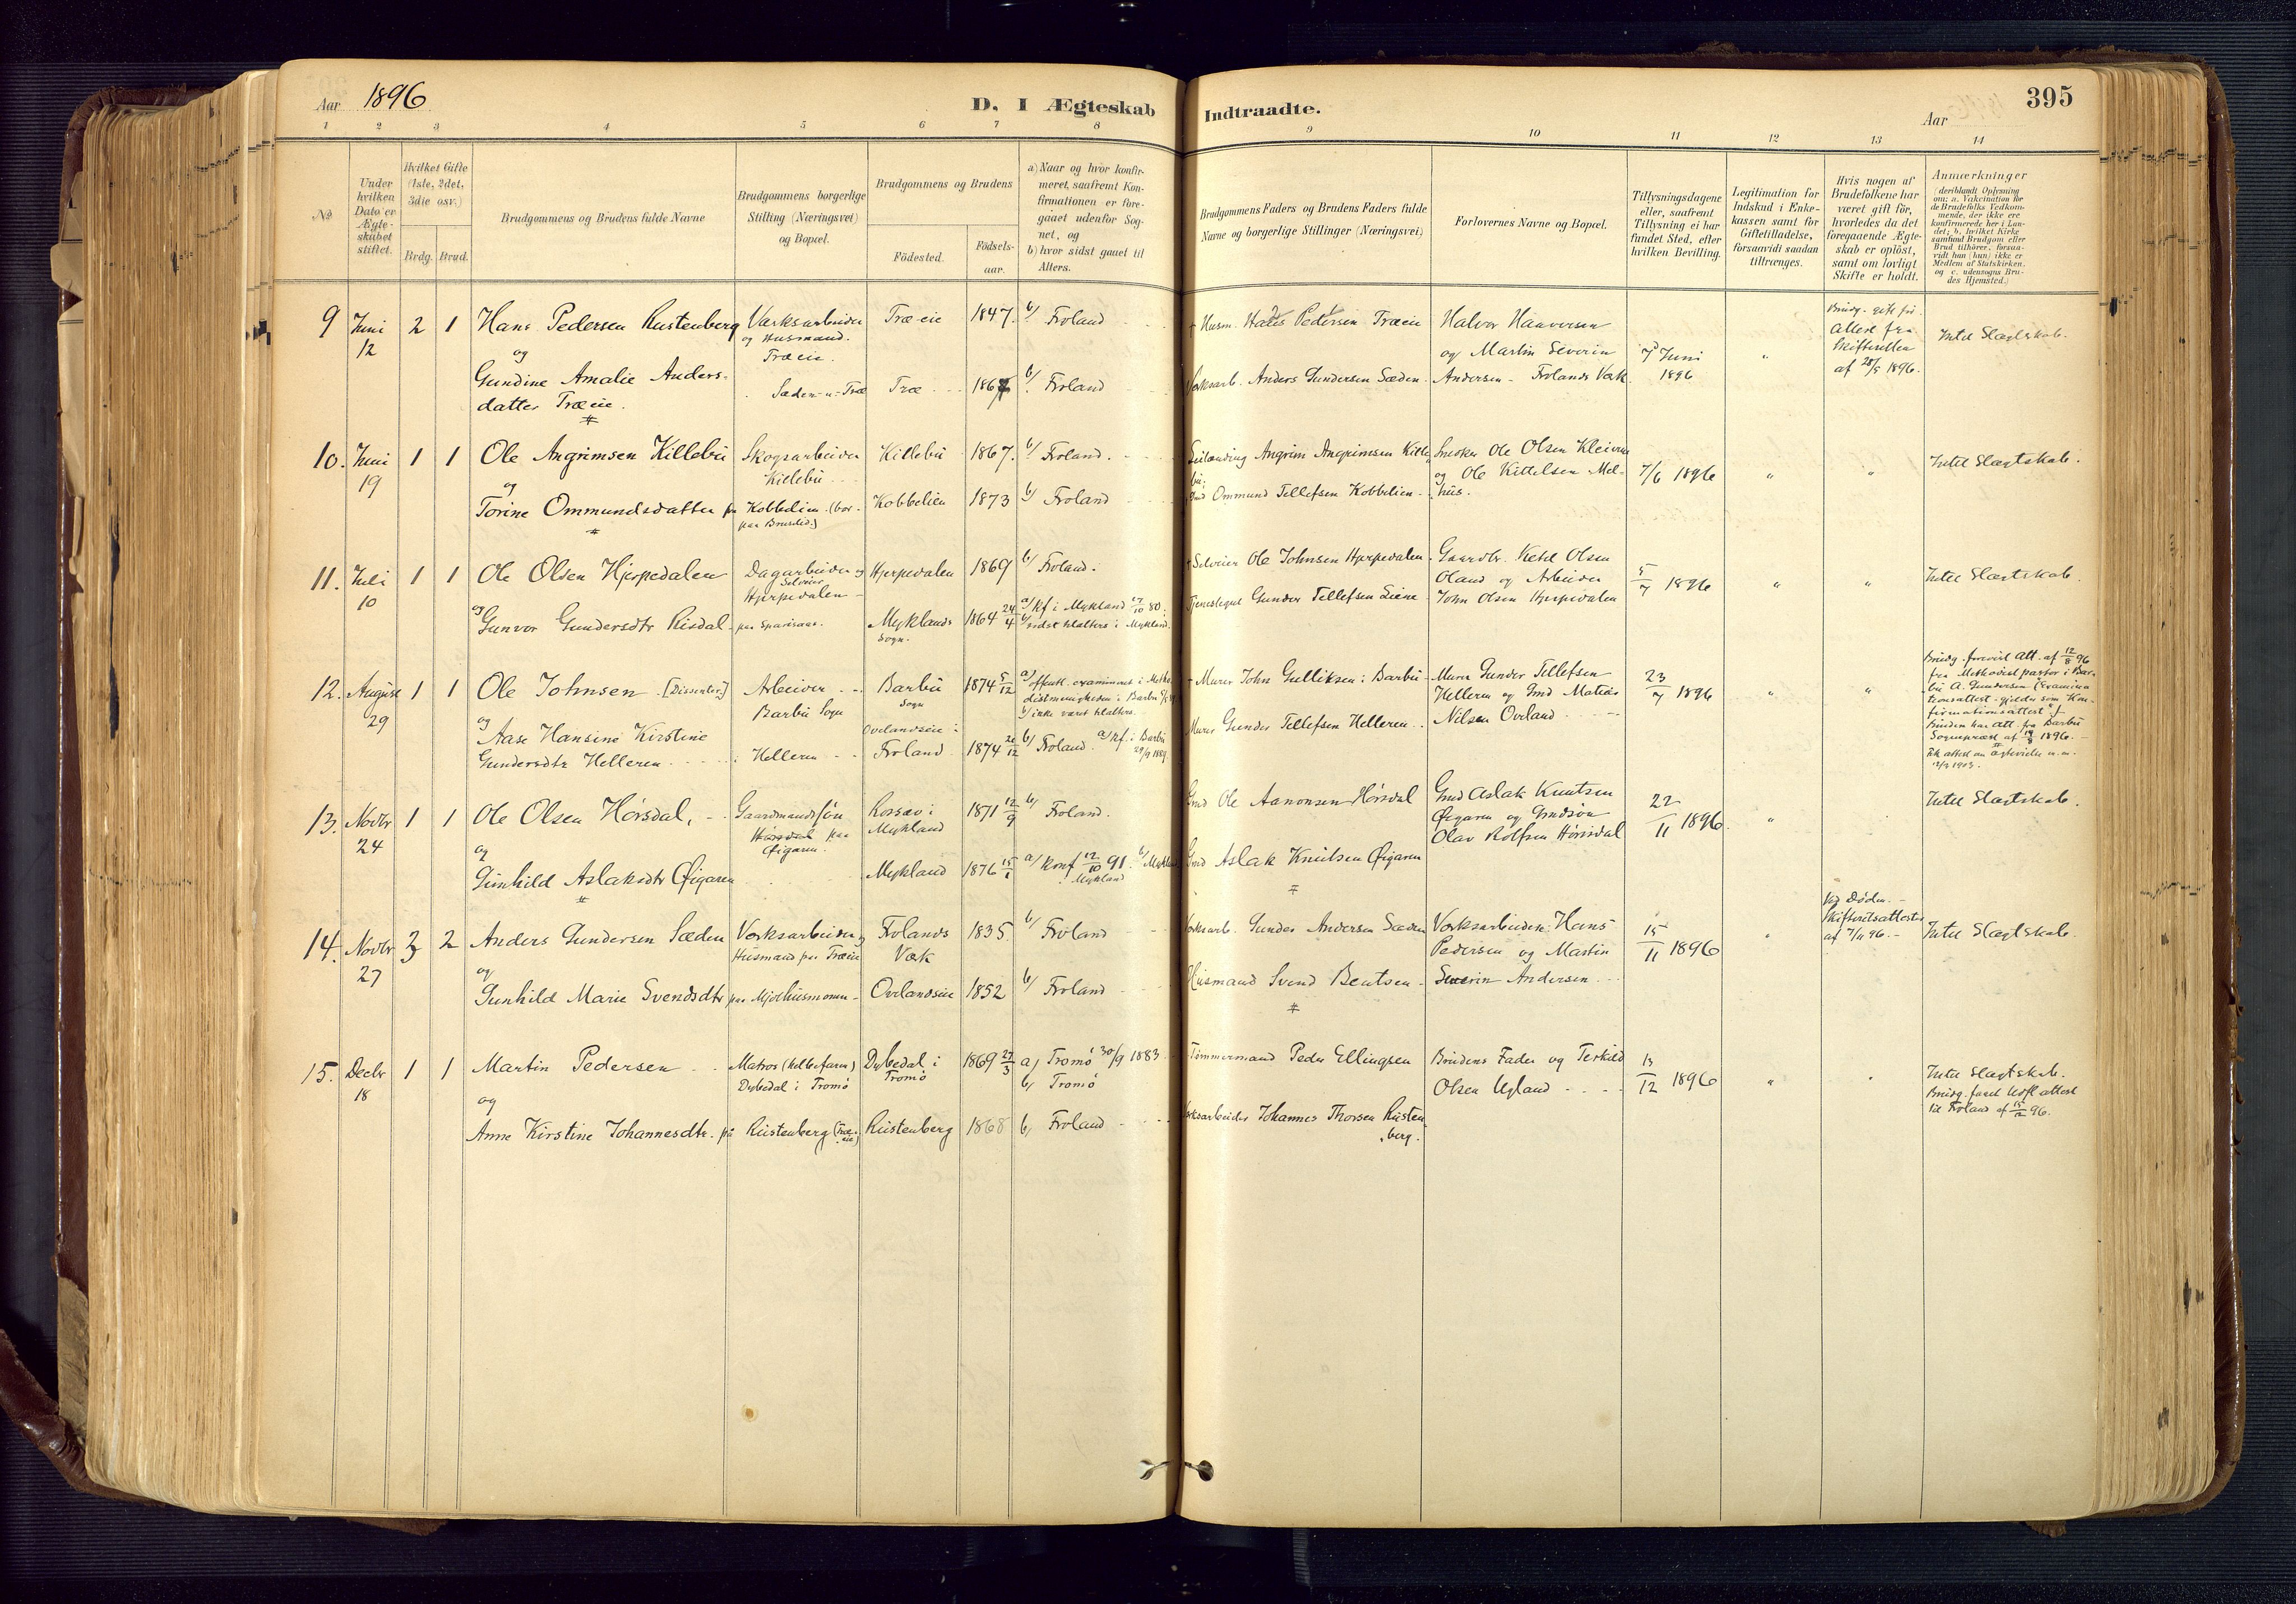 Aar 1896
D. I Ægteskab
Indtraadte.
Aar
395
1 2 3 4 5 6 7 8 9 10 11 12 13 14
No
Under hvilken Dato er Ægteskabet stiftet.
Hvilket Gifte (1ste, 2det, 3die osv.)
Brdg. Brud.
Brudgommens og Brudens fulde Navne
Brudgommens borgerlige Stilling (Næringsvei) og Bopæl.
Brudgommens og Brudens
Födested.
Födsels-aar.
a) Naar og hvor konfirmeret, saafremt Konfirmationen er foregaaet udenfor Sognet, og
b) hvor sidst gaaet til Alters.
Brudgommens Faders og Brudens Faders fulde Navne og borgerlige Stillinger (Næringsvei)
Forlovernes Navne og Bopæl.
Tillysningsdagene eller, saafremt Tillysning ei har fundet Sted, efter hvilken Bevilling.
Legitimation for Indskud i Enkekassen samt for Giftetilladelse, forsaavidt saadan tiltrænges.
Hvis nogen af Brudefolkene har været gift för, hvorledes da det foregaaende Ægteskab er oplöst, samt om lovligt Skifte er holdt.
Anmærkninger
(deriblandt Oplysning om: a. Vakcination for de Brudefolks Vedkommende, der ikke ere konfirmerede her i Landet; b. hvilket Kirkesamfund Brudgom eller Brud tilhörer, forsaavidt han (hun) ikke er Medlem af Statskirken, og c. udensogns Brudes Hjemsted.)
9 Juni 12 2 1
Hans Pedersen Rustenberg
og
Gundine Amalie Andersdatter Træeie.
Værksarbeider og Husmand. Træeie.
Sæden u. Træ
Træeie 1847. b/ Froland
Træ 1867 b/ Froland
+ Husm. Pedersen Træeie
Værksarb. Anders Gundersen Sæden
Halvor Haaversen
og Martin Severin
Andersen - Frolands Værk.
7 Juni 1896
"
Brudg. gift før.
Attest fra
Skifteretten
af 28/5 1896.
Intet Slægtskab.
10. Juni 19 1 1
Ole Angrimsen Killebu
og
Torine Ommundsdatter
Skogsarbeider
Killebu
paa Kobbelien (bor paa Brusdid)
Killebu 1867. b/ Froland.
Kobbelien 1873 b/ Froland
Leilænding Angrim Angrimsen Killebu.
Gmd Ommund Tellefsen Kobbelien
Snedker Ole Olsen Kleiven
og Ole Kittelsen Melhus.
7/6 1896
" "
Intet Slægtskab.
11. Juli 10 1 1
Ole Olsen Hjerpedalen
og
Gunvor Gundersdtr Risdal
Dagarbeider og Selveier
Hjerpedalen
paa Sparsaas.
Hjerpedalen 1869 b/ Froland.
Myklands Sogn. 1864 24/4 a/ Kf i Mykland 17/10 80.
b/ sidst tilalters i Mykland.
+ Selveier Ole Johnsen Hjerpedalen
Tjenestegut Gunder Tellefsen Liene
Gaardbr. Ketil Olsen
Oland og Arbeider
John Olsen Hjerpedalen
5/7 1896
" "
Intet Slægtskab.
12. August 29 1 1
Ole Johnsen [Dissenter.]
og
Aase Hansine Kirstine
Gundersdtr Helleren
Arbeider
Barbu Sogn
Helleren
Barbu Sogn 1874 5/12
a/ offentl. examineret i Methodistmenigheden i Barbu
b/ ikke været tilalters.
Ovelandseie i
Froland 1874 26/12 b/ Froland. a/ Kf. i Barbu 29/9 1889.
+ Murer John Gulliksen i Barbu
Murer Gunder Tellefsen Helleren
Murer Gunder Tellefsen
Helleren og Gmd Matias
Nilsen Overland
23/7 1896
" "
Brudg. forevist Att. af 12/8 96
fra Methodistpastor i Barbu A. Gundersen (Examinationsattest gjelder som Konfirmationsattest
Bruden har Att. fra Barbu
Sogneprest af 14/8 1896.
12/9 1903.
13. Novbr 24 1 1
Ole Olsen Hørsdal,
og
Gunhild Aslaksdtr Øigaren
Gaardmandssøn
Hørsdal paa
Øigaren.
Rossæv i
Mykland 1871 12/9 b/ Froland.
Mykland 1876 15/1 a/ Konf 12/10 91. b/ Mykland
Mykland
Gmd Ole Aanonsen Hørsdal
Gmd Aslak Knutsen Øigaren
Gmd Aslak Knutsen
Øigaren og Gmdsøn
Olav Rolfsen Hørsdal
22/11 1896.
"
Intet Slægtskab.
14. Novbr 27 3 2
Anders Gundersen Sæden
og
Gunhild Marie Svendsdtr
Værksarbeider og
Husmand paa Træeie
paa Mjølhusmoen
Frolands
Værk 1835. b/ Froland
Ovelandseie 1852 b/ Froland
Værksarb. Gunder Andersen Sæden
Husmand Svend Bentsen
Værksarbeiderne Hans
Pedersen og Martin
Severin Andersen
15/11 1896
"
Ved Døden.
Skifteretsattester
af 7/11 96.
Intet Slægtskab.
15. Decbr 18 1 1
Martin Pedersen
og
Anne Kirstine Johannesdtr.
Matros (helbefaren)
Dybedal i Tromø
på Rustenberg (Træeie)
Dybedal i
Tromø 1869 27/3 a) Tromø 30/9 1883
b) Tromø
Rustenberg 1868 b) Froland
Tømmermand Peder Ellingsen
Værksarbeider Johannes Thorsen Rustenberg.
Brudens Fader og Terkild
Olsen Ugland
13/12 1896
"
Intet Slægtskab.
Brudg. faaet Udfl. attest
til Froland af 15/12 96.